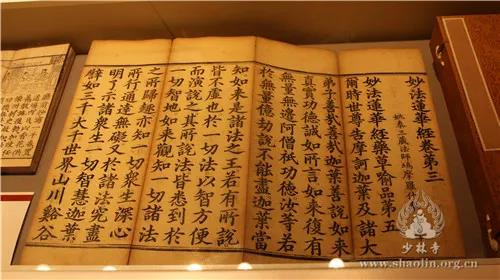 妙法蓮華經卷第三
姚秦三藏法師鳩摩羅
妙法蓮華經藥草喻品第五
爾時世尊告摩訶迦葉及諸大
弟子善哉善哉迦葉善說如來
真實功德誠如所言如來復有
無量無邊阿僧祇功德汝等若
於無量億劫說不能盡迦葉當
知如來是諸法之王若有所說
皆不虛也於一切法以智方便
而演說之其所說法皆悉到於
一切智地如來觀知一切諸法
之所歸趣亦知一切眾生深心
所行通達無礙又於諸法究盡
明了示諸眾生一切智慧迦葉
譬如三千大千世界山川谿谷
少林寺
www.shaolin.org.cn